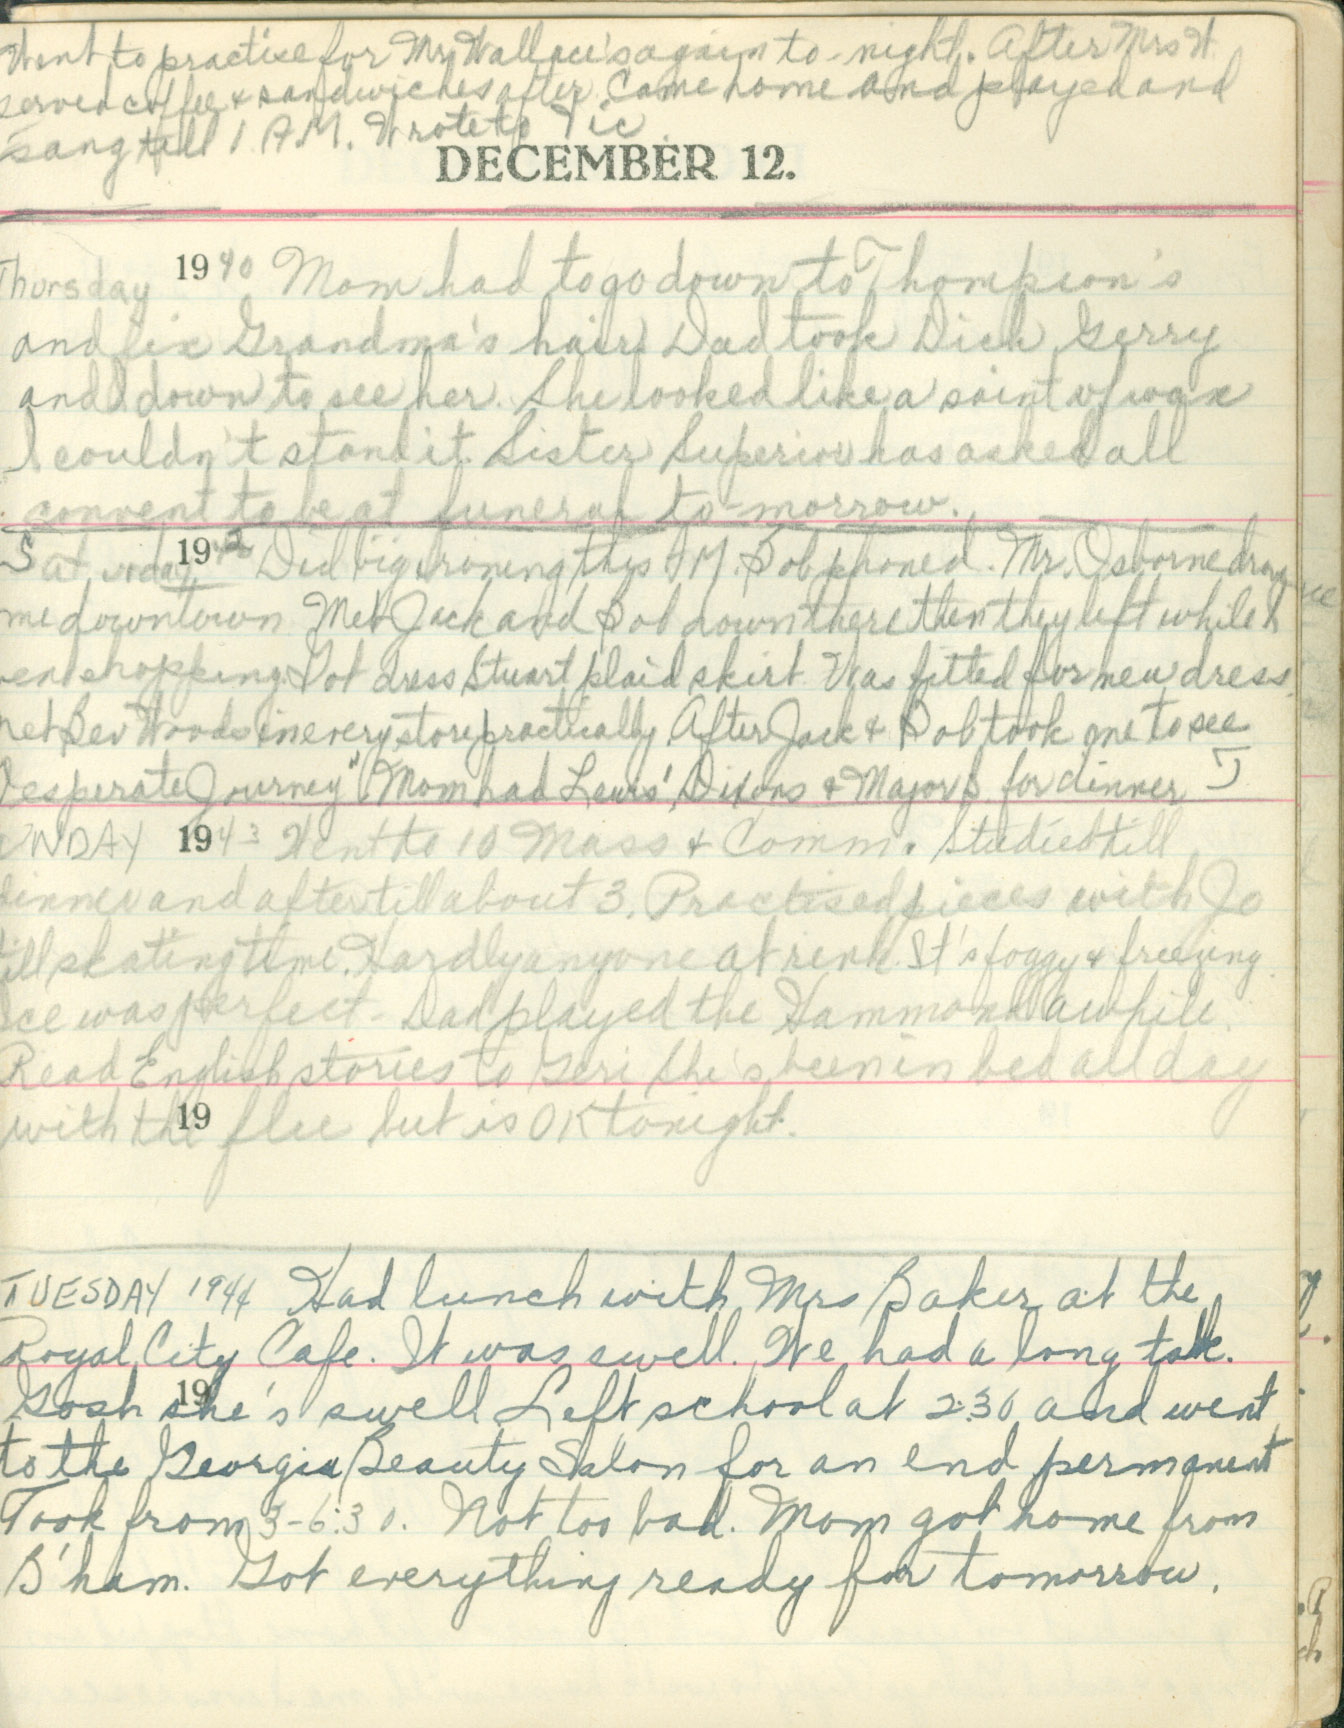 Went to practise for Mr Wallace's again to-night. After Mrs W.
served coffee & sandwiches after. Came home and played and
sang till 1 A.M. Wrote to Vic
DECEMBER 12.
Thursday 1940 Mom had to go down to Thompson's
and fix Grandma's hair. Dad took Dick Gerry
and I down to see her. She looked like a saint of wax
I couldn't stand it. Sister Superior has asked all
convent to be at funeral to-morrow.
Saturday 1942 Did big ironing this AM. Bob phoned. Mr. Osborne drove
me downtown Met Jack and Bob down there then they left while I
went shopping. Got dress Stuart plaid skirt. Was fitted for new dress.
met Bev Woods in every store practically. After Jack & Bob took me to see
Desperate Journey" Mom had Lewis' Dixons & Major B. for dinner
SUNDAY 1943 Went to 10 Mass & Comm. Studied till
dinner and after till about 3. Practised pieces with Jo
till skating time. Hardly anyone at rink. It's foggy & freezing.
Ice was perfect - Dad played the Hammond awhile.
Read English stories to Geri she's been in bed all day
19
with the flu but is OK tonight.
TUESDAY 1944 Had lunch with Mrs Baker at the
Royal City Cafe. It was swell. We had a long talk.
19
Gosh she's swell Left school at 2:30 and went
to the Georgia Beauty Salon for an end permanent
Took from 3-6:30. Not too bad. Mom got home from
B'ham. Got everything ready for tomorrow.